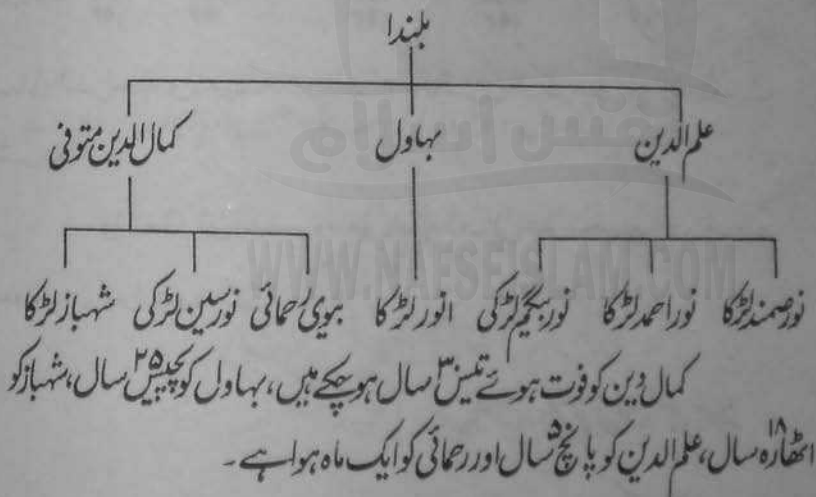 بلندا
علم الدین بہاول کمال الدین متوفی
نور صمند لڑکا نور احمد لڑکا نور بیگم لڑکی انور لڑکا بیوی رحمائی نور سین لڑکی شہباز لڑکا
کمال دین کو فوت ہوئے تیس ۳۰ سال ہو چکے ہیں، بہاول کو پچیس ۲۵ سال، شہباز کو
اٹھارہ ۱۸ سال، علم الدین کو پانچ ۵ سال اور رحمائی کو ایک ماہ ہوا ہے۔
نفس اسلام
WWW.NAFSEISLAM.COM